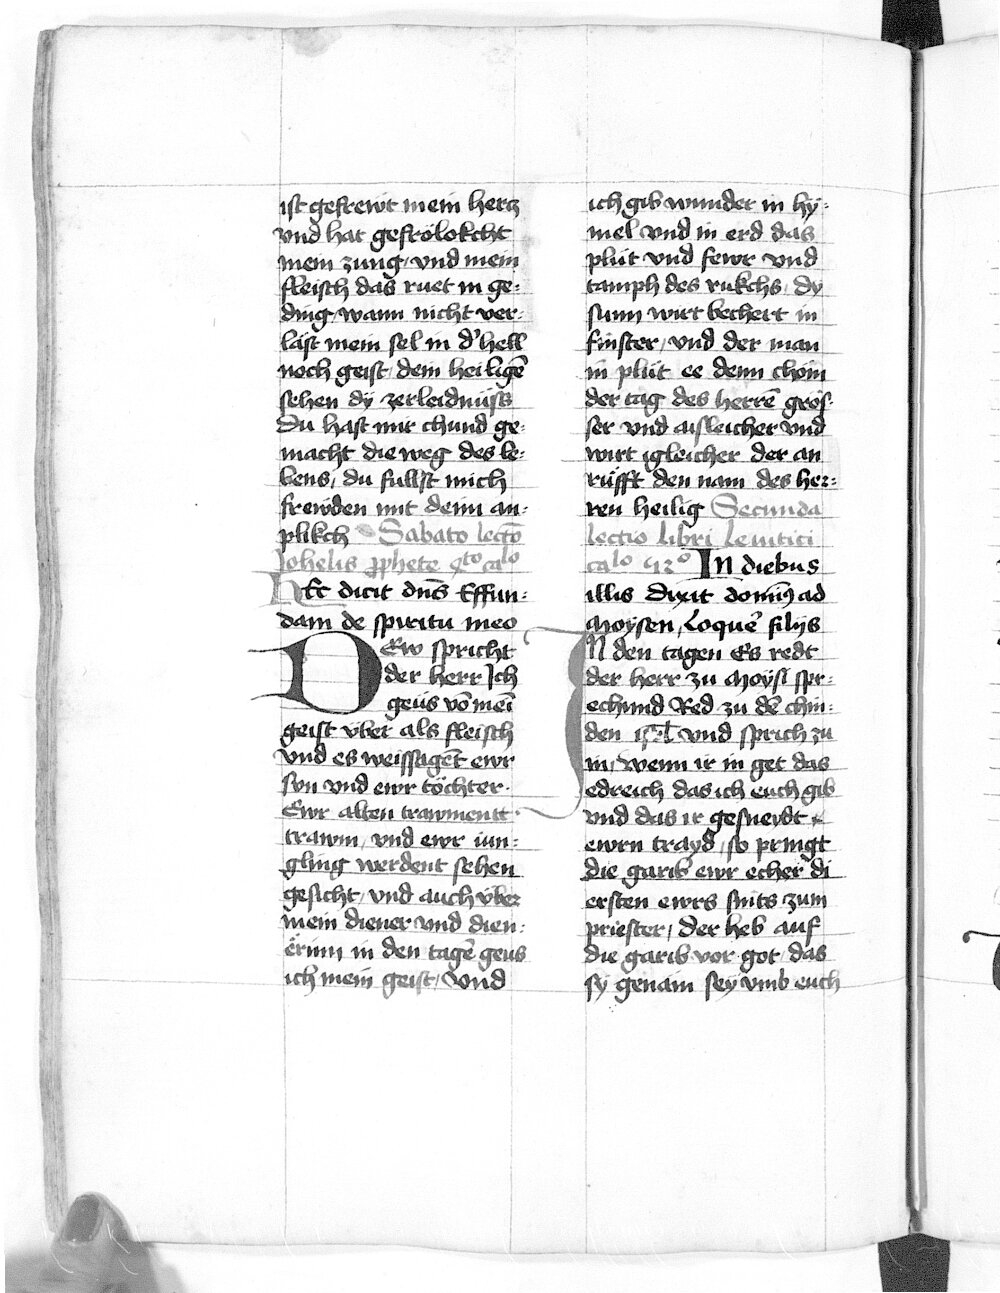 ist gefrewt mein hercz
vnd hat gefrölokcht
mein zung / vnd mein
fleisch das ruet in ge-
ding / wann nicht ver-
läst mein sel in d' hell
noch geist dem heiligē
sehen dy zerleidnüss
Du hast mir chund ge-
macht die weg des le-
bens / du fullst mich
frewden mit deim an-
plikch Sabato lectō
Johelis ꝓphete qto calo
Hec dicit dn̄s Effun-
dam de spiritu meo
DEw spricht
der herr Ich
geüs vō meī
geist vber als fleisch
vnd es weissagēt ewr
sün vnd ewr töchter
Ewr alten trawmentt
trawm / vnd ewr iun-
gling werdent sehen
gesicht / vnd auch vber
mein diener vnd dien-
ërinn in den tagē geus
ich mein geist / vnd
ich gib wunder in hy-
mel vnd in erd das
plüt vnd fewr vnd
tamph des rukchs / dy
sunn wirt bechert in
finster / vnd der man
in plüt ee denn chöm
der tag des herrē grös-
ser vnd aisleicher vnd
wirt igleicher der an
rüfft den nam des her-
ren heilig Secunda
lectio libri leuitici
calo 230 In diebus
illis Dixit dominꝰ ad
Moysen / Loquē filijs
IN den tagen Es redt
der herr zu Moysi spr-
echund Red zu dē chin-
den isrl vnd sprich zu
in / wenn ir in get das
edreich das ich euch gib
vnd das ir gesneydt
ewrn trayd / so pringt
die garib ewr echer di
ersten ewrs snits zum
priester / der heb auf
die garib vor got / das
sy genäm sey vmb euch